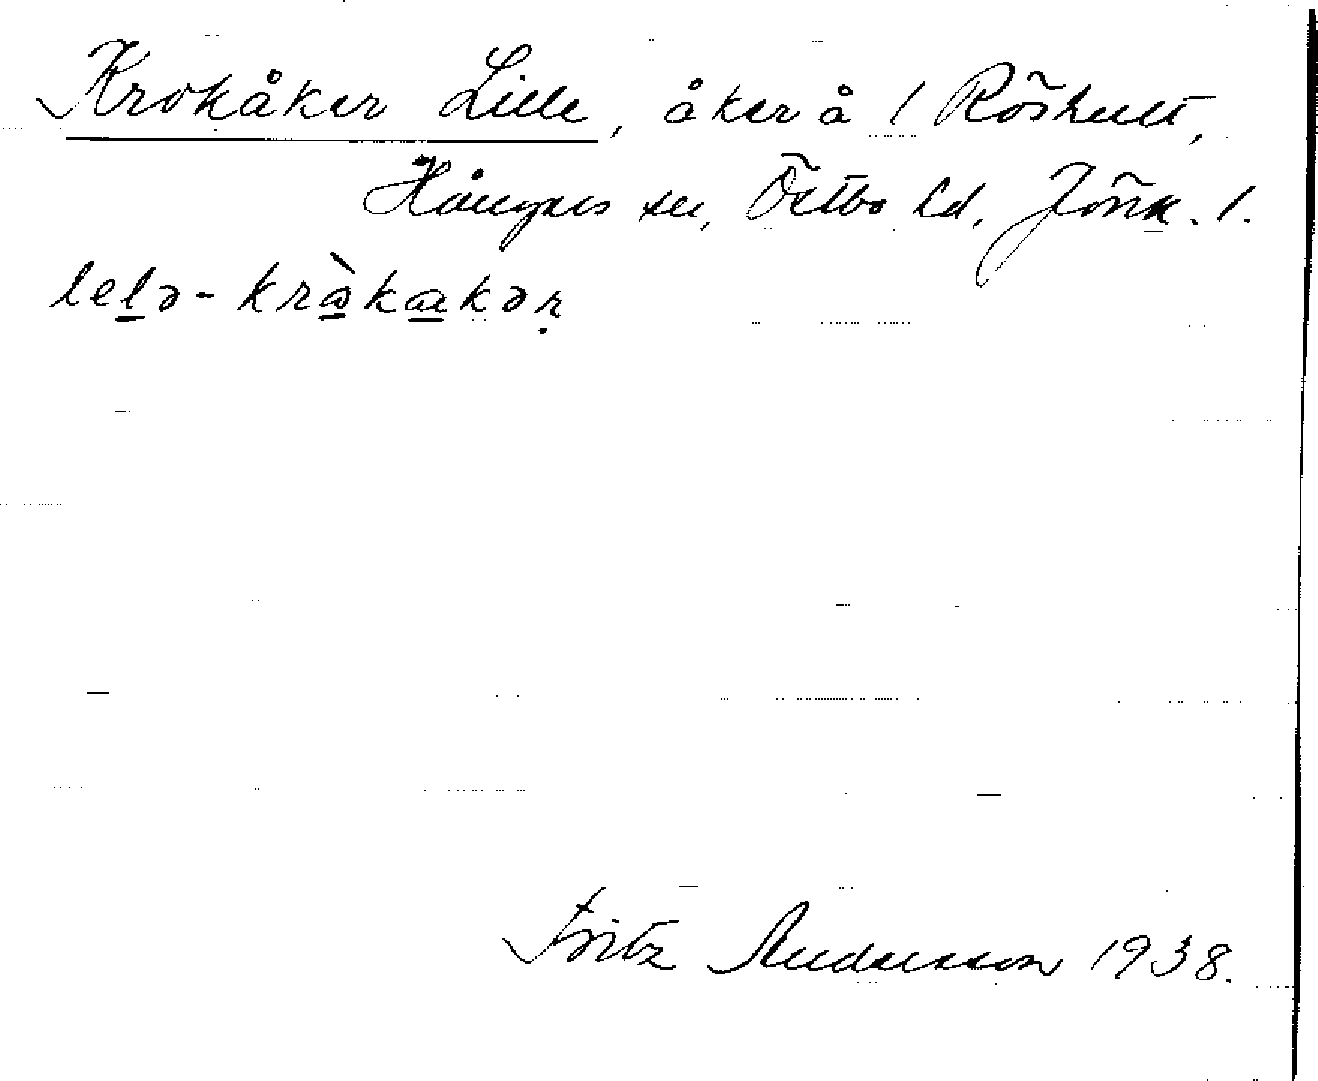 Krokåker Lille, åker å 1 Röshult,
Hångers sn, Östbo hd, Jönk. l.
lelə-kråkakər
Fritz Andersson 1938.